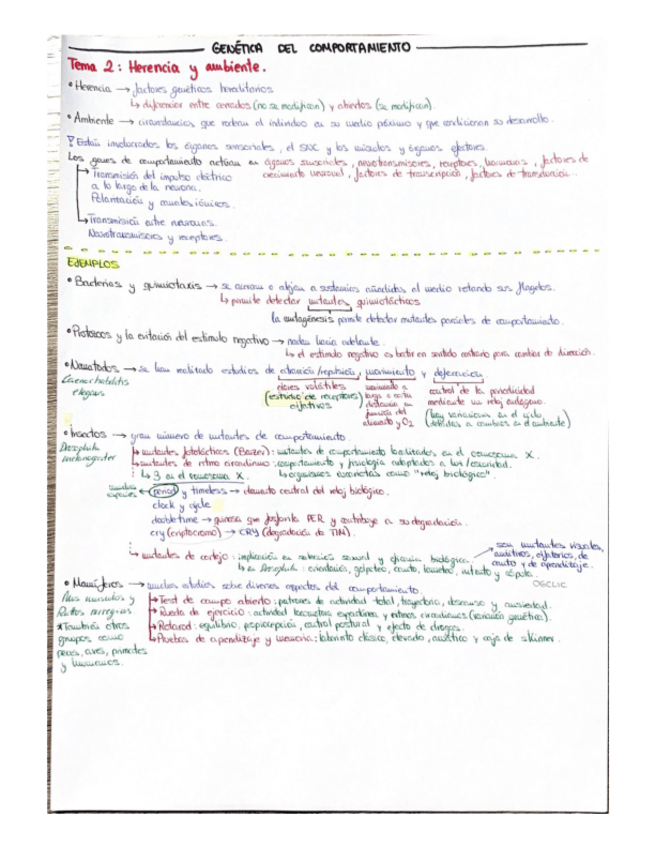 GENÉTICA DEL COMPORTAMIENTO
Tema 2: Herencia y ambiente.
• Herencia → factores genéticos hereditarios
↳ diferenciar entre cerrados (no se modifican) y abiertos (se modifican).
• Ambiente → circunstancias que rodean al individuo en su medio próximo y que condicionan su desarrollo.
Están involucrados los órganos sensoriales, el SNC y los músculos y órganos efectores.
Los genes de comportamiento actúan en órganos sensoriales, neurotransmisores, receptores, hormonas, factores de
crecimiento neuronal, factores de transcripción, factores de traducción...
→ Transmisión del impulso eléctrico
a lo largo de la neurona.
Polarización y canales iónicos.
→ Transmisión entre neuronas.
Neurotransmisores y receptores.
EJEMPLOS
• Bacterias y quimiotaxis → se acercan o alejan a sustancias añadidas al medio rotando sus flagelos.
↳ permite detectar mutantes quimiotácticos
la mutagénesis permite detectar mutantes parciales de comportamiento.
• Protozoos y la evitación del estímulo negativo → nadan hacia adelante.
↳ el estímulo negativo es batir en sentido contrario para cambiar de dirección.
• Nematodos → se han realizado estudios de atracción/repulsión, movimiento y defecación.
Caenorhabditis
elegans
olores volátiles
(estudio de receptores)
olfativos
movimiento a
larga o corta
distancia en
función del
alimento y O2
control de la periodicidad
mediante un reloj endógeno.
(hay variaciones en el ciclo
debidas a cambios en el ambiente)
• Insectos → gran número de mutantes de comportamiento.
Drosophila
melanogaster
↳ mutantes fototácticos (Benzer): mutantes de comportamiento localizados en el cromosoma X.
↳ mutantes de ritmo circadiano: comportamiento y fisiología adaptados a luz/oscuridad.
↳ 3 en el cromosoma X. ↳ organismos eucariotas como "reloj biológico".
muchas
especies ← period y timeless → elemento central del reloj biológico.
clock y cycle
doubletime → quinasa que fosforila PER y contribuye a su degradación.
cry (criptocromo) → CRY (degradación de TIM).
↳ mutantes de cortejo: implicación en selección sexual y eficacia biológica.
→ son mutantes visuales,
auditivos, olfatorios, de
canto y de aprendizaje.
↳ en Drosophila: orientación, golpeteo, canto, lameteo, intento y cópula.
OGCLIC
• Mamíferos → muchos estudios sobre diversos aspectos del comportamiento.
Mus musculus y
Rattus norvegicus
*También otros
grupos como
peces, aves, primates
y humanos.
→ Test de campo abierto: patrones de actividad total, trayectoria, descanso y ansiedad.
→ Rueda de ejercicio: actividad locomotora espontánea y ritmos circadianos (variación genética).
→ Rotarod: equilibrio, propiocepción, control postural y efecto de drogas.
→ Pruebas de aprendizaje y memoria: laberinto clásico, elevado, acuático y caja de skinner.